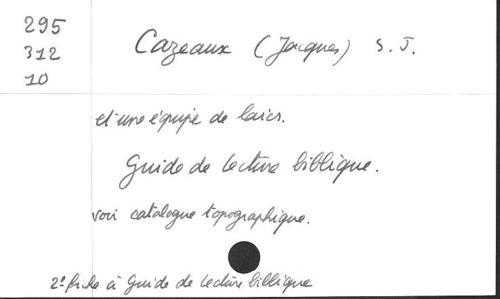 295
312
10
Cazeaux (Jacques) S. J.
et une équipe de laics.
Guide de lecture biblique.
voir catalogue topographique.
2e fiche à Guide de lecture biblique